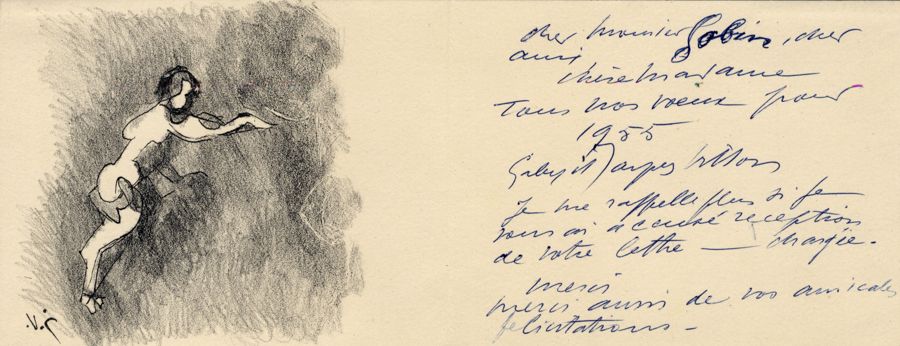 cher Monsieur Gobin, cher
ami
chère Madame
Tous nos voeux pour
1955
Gaby et Jacques Villon
Je me rappelle plus si je
vous ai accusé reception
de votre lettre — chargée.
merci
merci aussi de vos amicales
felicitations —
J.V.